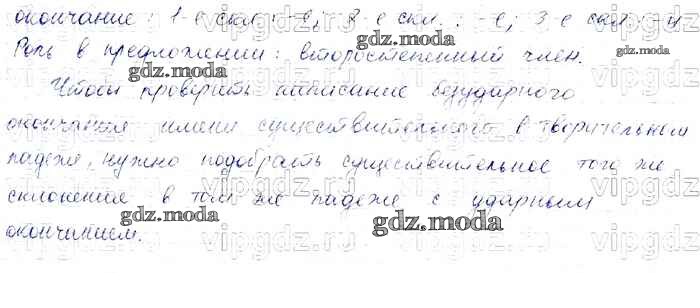 окончание: 1-е скл.: -е; 2-е скл.: -е; 3-е скл.: -и
Роль в предложении: второстепенный член.
Чтобы проверить написание безударного
окончания имени существительного в творительном
падеже, нужно подобрать существительное того же
склонения в том же падеже с ударным
окончанием.